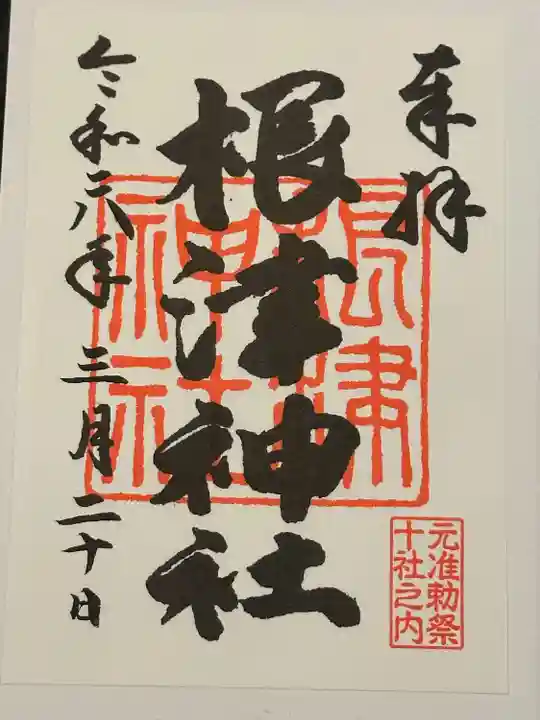 奉拝
根津神社
令和六年 三月二十日
根津
神社
元准勅祭
十社之内